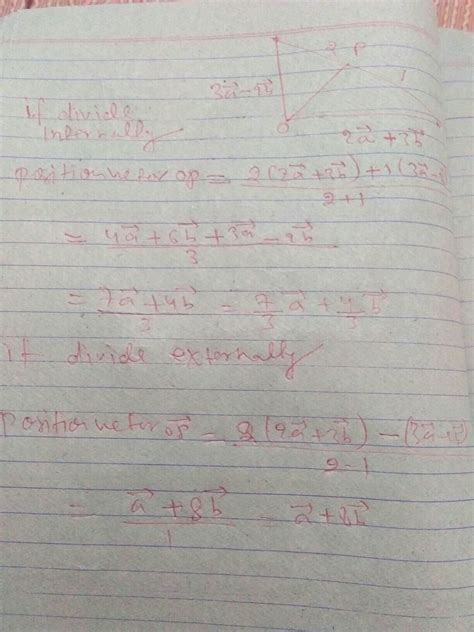 2 P
3a⃗-2b⃗ 1
if divide
internally
O
2a⃗+3b⃗
position vector OP = 2(2a⃗+3b⃗)+1(3a⃗-
2+1
= 4a⃗+6b⃗+3a⃗-2b⃗
3
= 7a⃗+4b⃗ = 7/3 a⃗ + 4/3 b⃗
3
if divide externally
Position vector OP⃗ = 2(2a⃗+3b⃗)-(3a⃗-2b⃗)
2-1
= a⃗+8b⃗ = a⃗+8b⃗
1